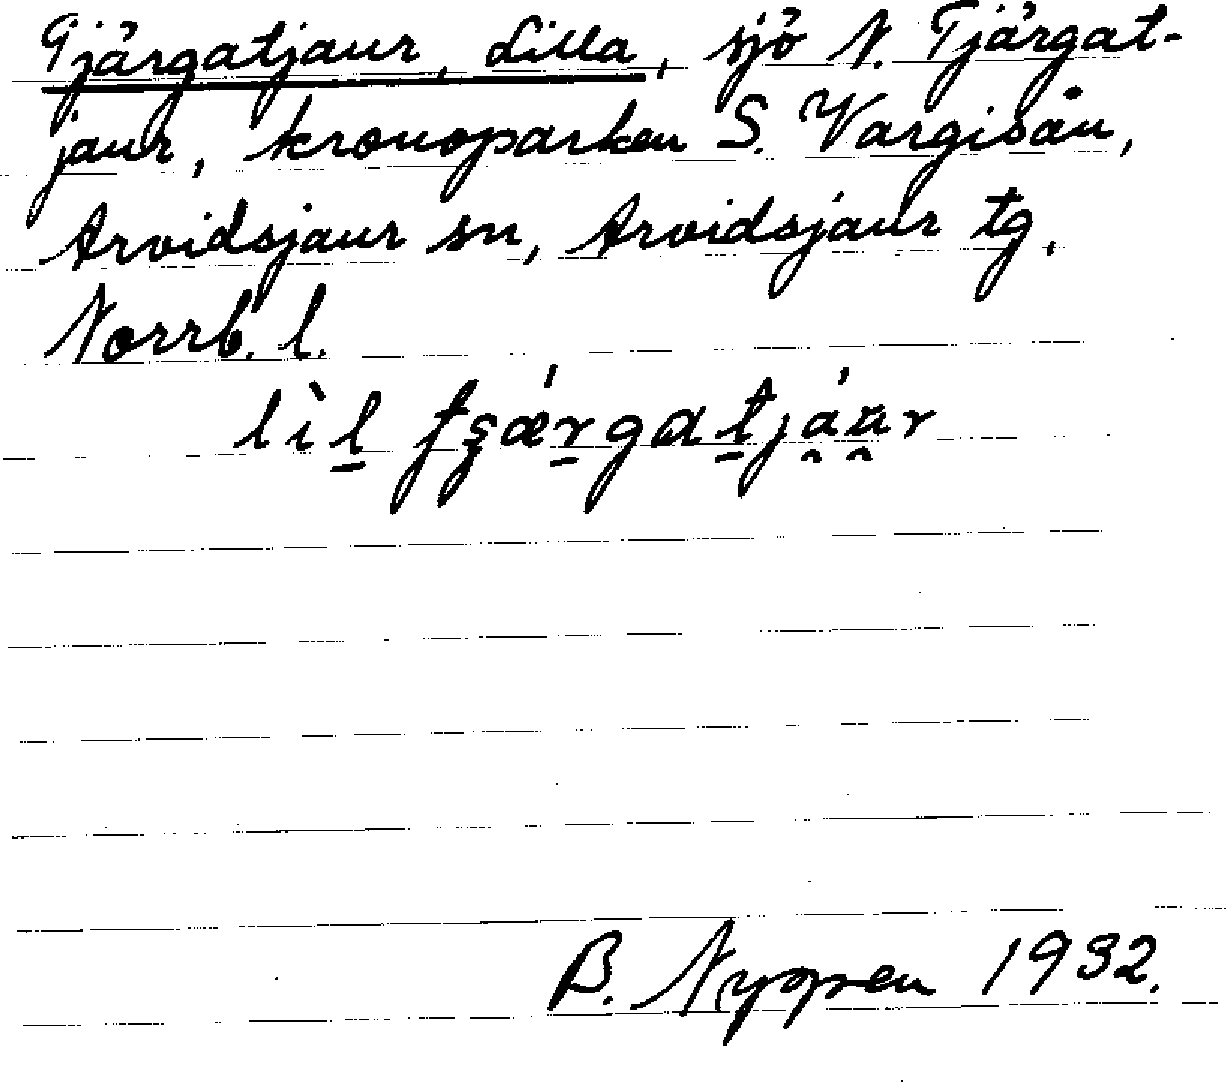 Tjärgatjaur, Lilla, sjö N. Tjärgat-
jaur, kronoparken S. Vargisån,
Arvidsjaur sn, Arvidsjaur tg,
Norrb. l.
lìl̠ tʂǽr̠gat̠já̯a̯r
B. Nyppen 1932.